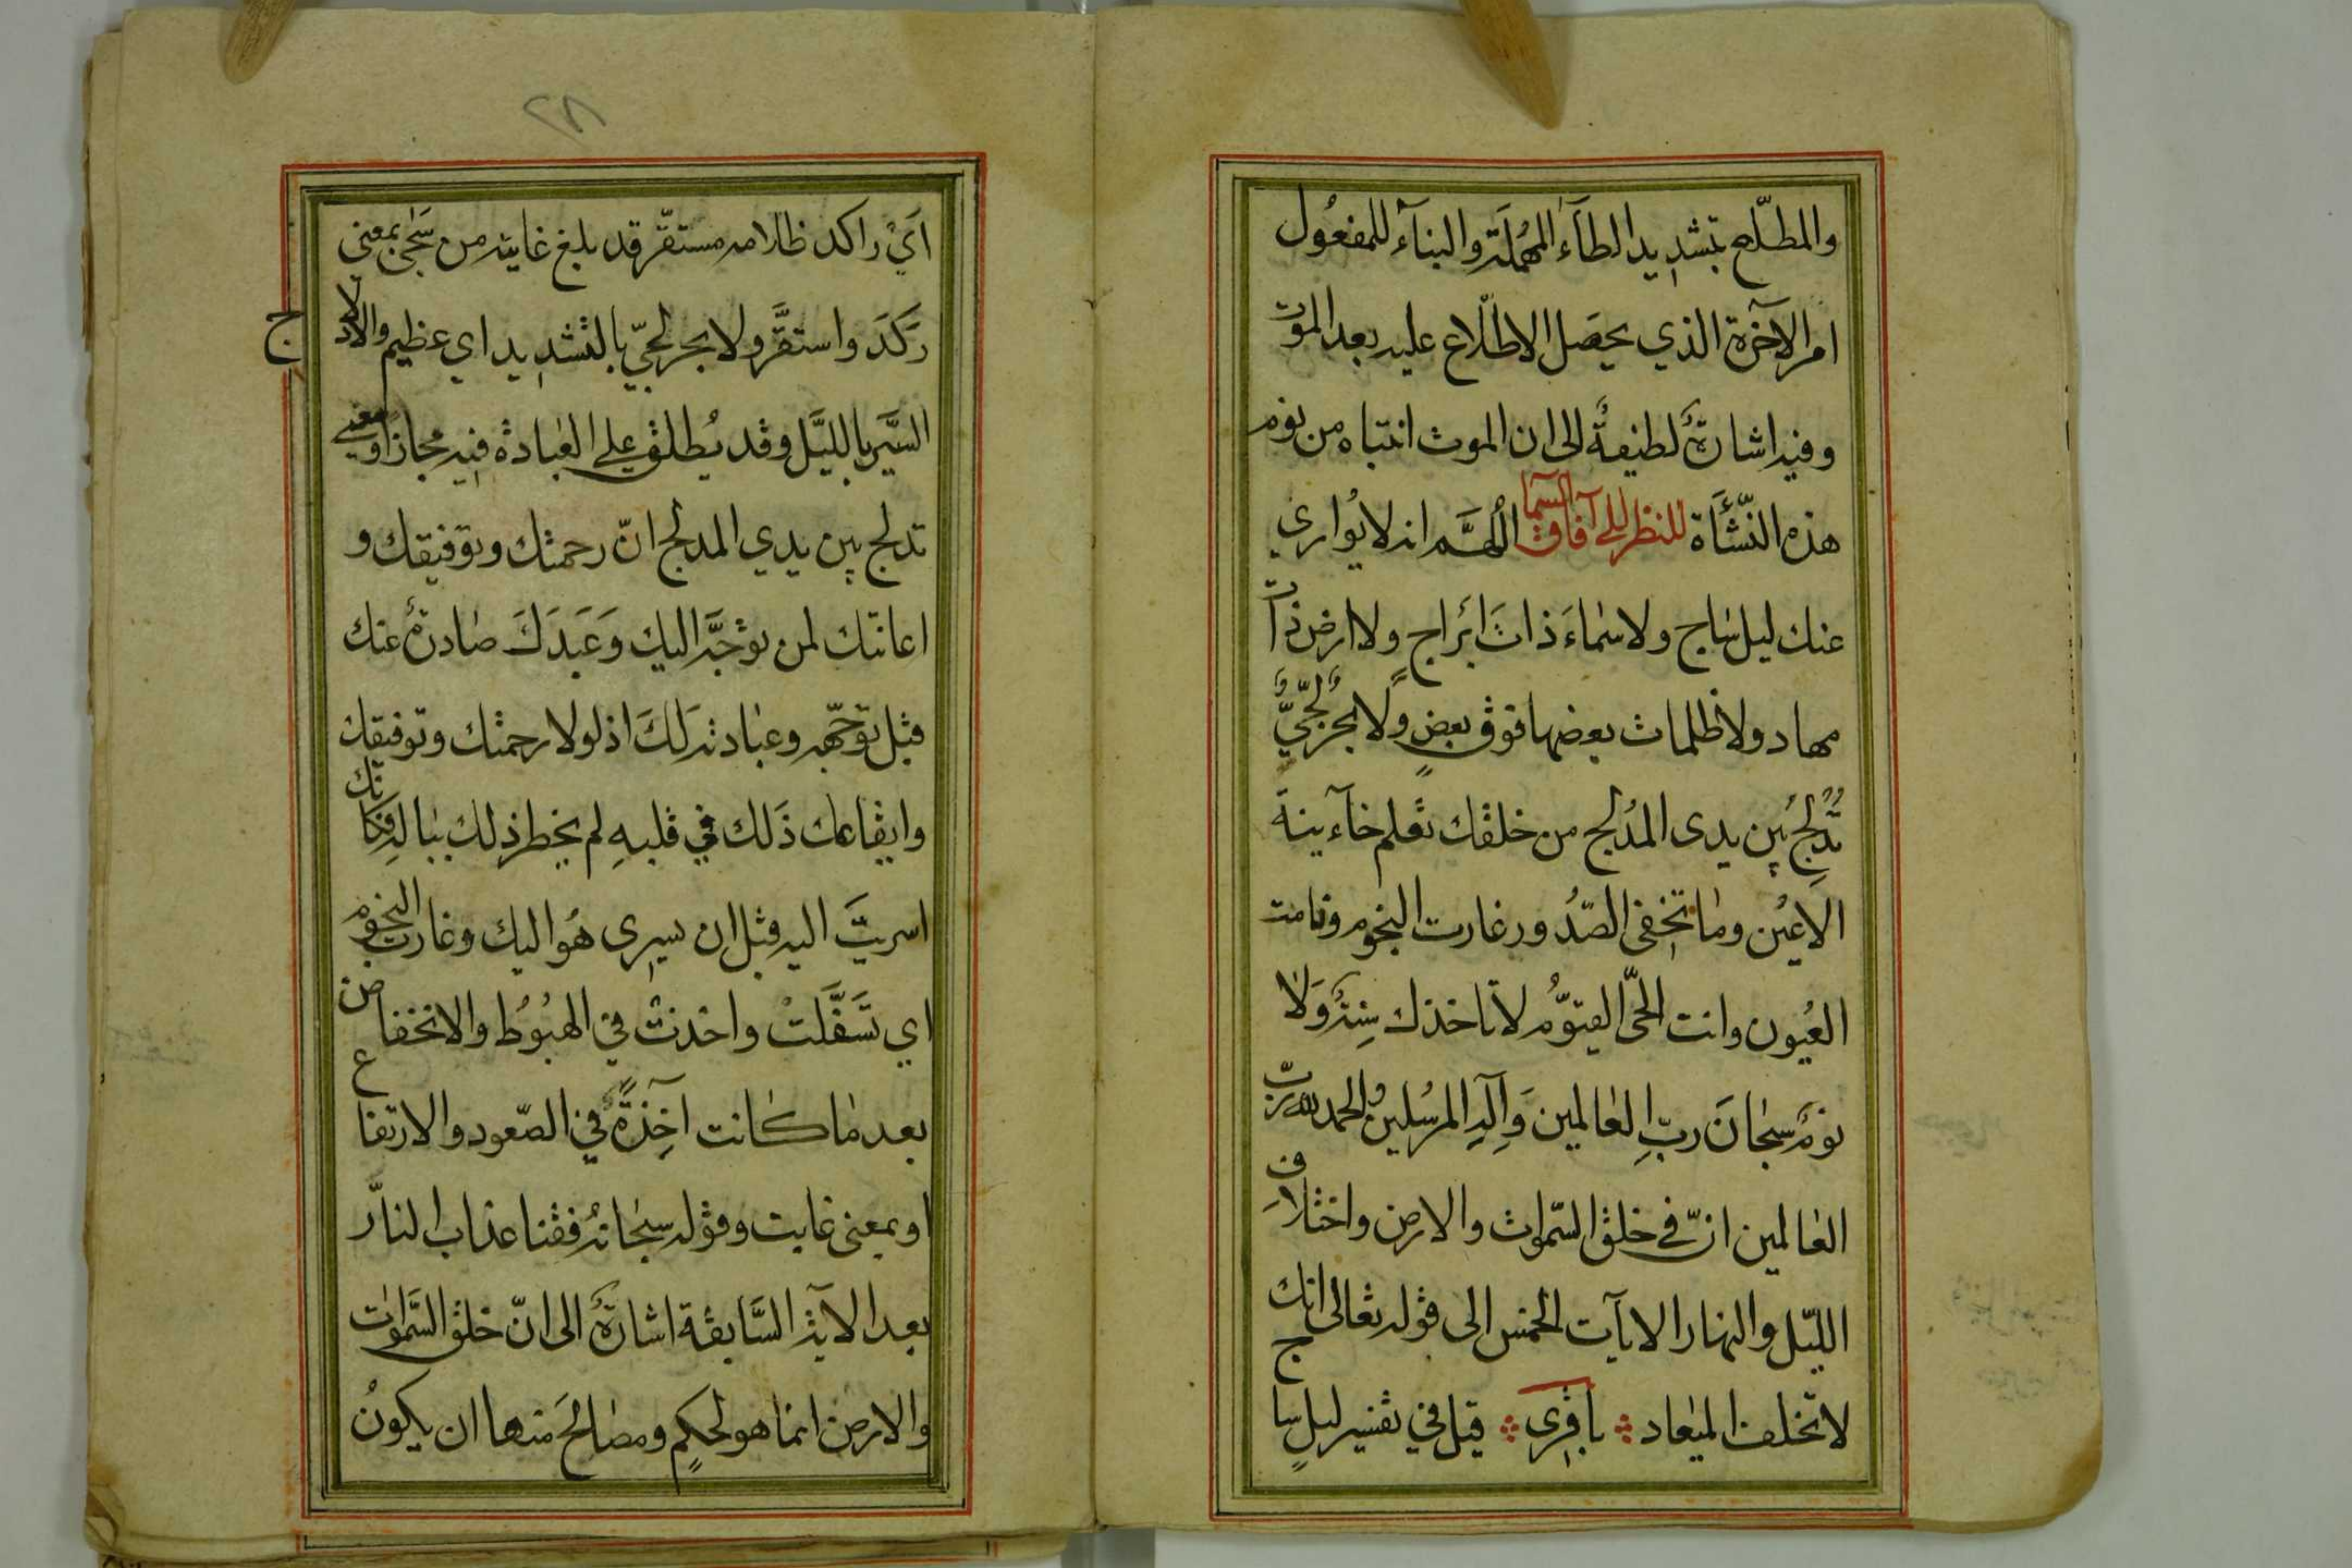 والمطلّع بتشديد الطآء المهملة والبنآء للمفعُول
امر الآخرة الذي يحصل الاطلاع عليه بعد الموت
وفيه اشارةٌ لطيفةٌ الى ان الموت انتباه من نوم
هذه النّشأة للنظر الى آفاق السمآ اللهمّ انه لا يُواري
عنك ليل ساج ولا سماءَ ذاتَ ابراج ولا ارض ذات
مهاد ولا ظلمات بعضها فوق بعضٍ ولا بحر لجّيّ
تدلج بين يدى المدلج من خلقك تعلم خآئنة
الاعين وما تخفى الصّدور غارت النجوم ونامت
العُيون وانت الحّى القيّوم لا تاخذك سِنةٌ وَلا
نومٌ سبحانَ ربِّ العالمين وَإلهِ المرسلين والحمد لله ربّ
العالمين انّ فے خلق السّموات والارض واختلافِ
الليّل والنهار الايآت الخمس الى قوله تعالى انك
لا تخلف الميعاد باقرى قيل في تفسير ليلٍ سا
ج
٢٨
اَيْ راكد ظلامه مستقّر قد بلغ غايته من سَجى بمعنى
رَكَدَ واستقَّر ولا بحر لجّيّ بالتشديد اي عظيم والادلا
ج
السَّير بالليَّل وقد يُطلق على العبادة فيه مجازاً ومعنى
تدلج بين يدي المدلج انّ رحمتك وتوفيقك و
اعانتك لمن توجَّه اليك وَعَبَدَكَ صادرةٌ عنك
قبل توجّهه وعبادته لَكَ اذ لولا رحمتك وتوفيقك
وايقاعك ذَلك في قلبهِ لم يخطر ذلك بباله فكانك
اسريتَ اليه قبل ان يسرى هُو اليك وغارت النجوم
اي تَسَفَّلَتْ واخذت في الهبُوُط والانخفاض
بعد ما كانت آخِذةً في الصّعود والارتفاع
او بمعنى غابت وقوله سبحانهُ فقنا عذاب النار
بعد الآية السَّابقة اشارةٌ الى انّ خلق السَّموات
والارض انما هو لحكمٍ ومصالحَ منها ان يكونُ